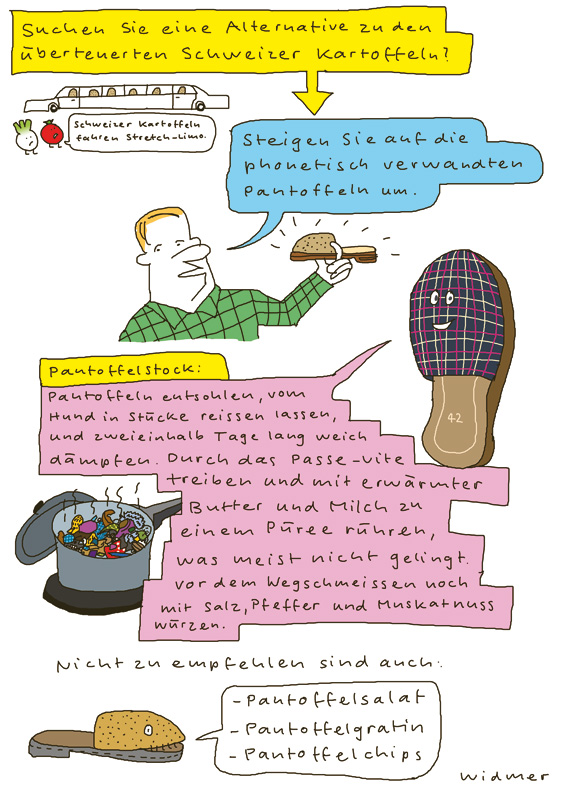 Suchen Sie eine Alternative zu den
überteuerten Schweizer Kartoffeln?
Schweizer Kartoffeln
fahren Stretch-Limo.
Steigen Sie auf die
phonetisch verwandten
Pantoffeln um.
42
Pantoffelstock:
Pantoffeln entsohlen, vom
Hund in Stücke reissen lassen,
und zweieinhalb Tage lang weich
dämpfen. Durch das Passe-vite
treiben und mit erwärmter
Butter und Milch zu
einem Püree rühren,
was meist nicht gelingt.
Vor dem Wegschmeissen noch
mit Salz, Pfeffer und Muskatnuss
würzen.
Nicht zu empfehlen sind auch:
- Pantoffelsalat
- Pantoffelgratin
- Pantoffelchips
Widmer